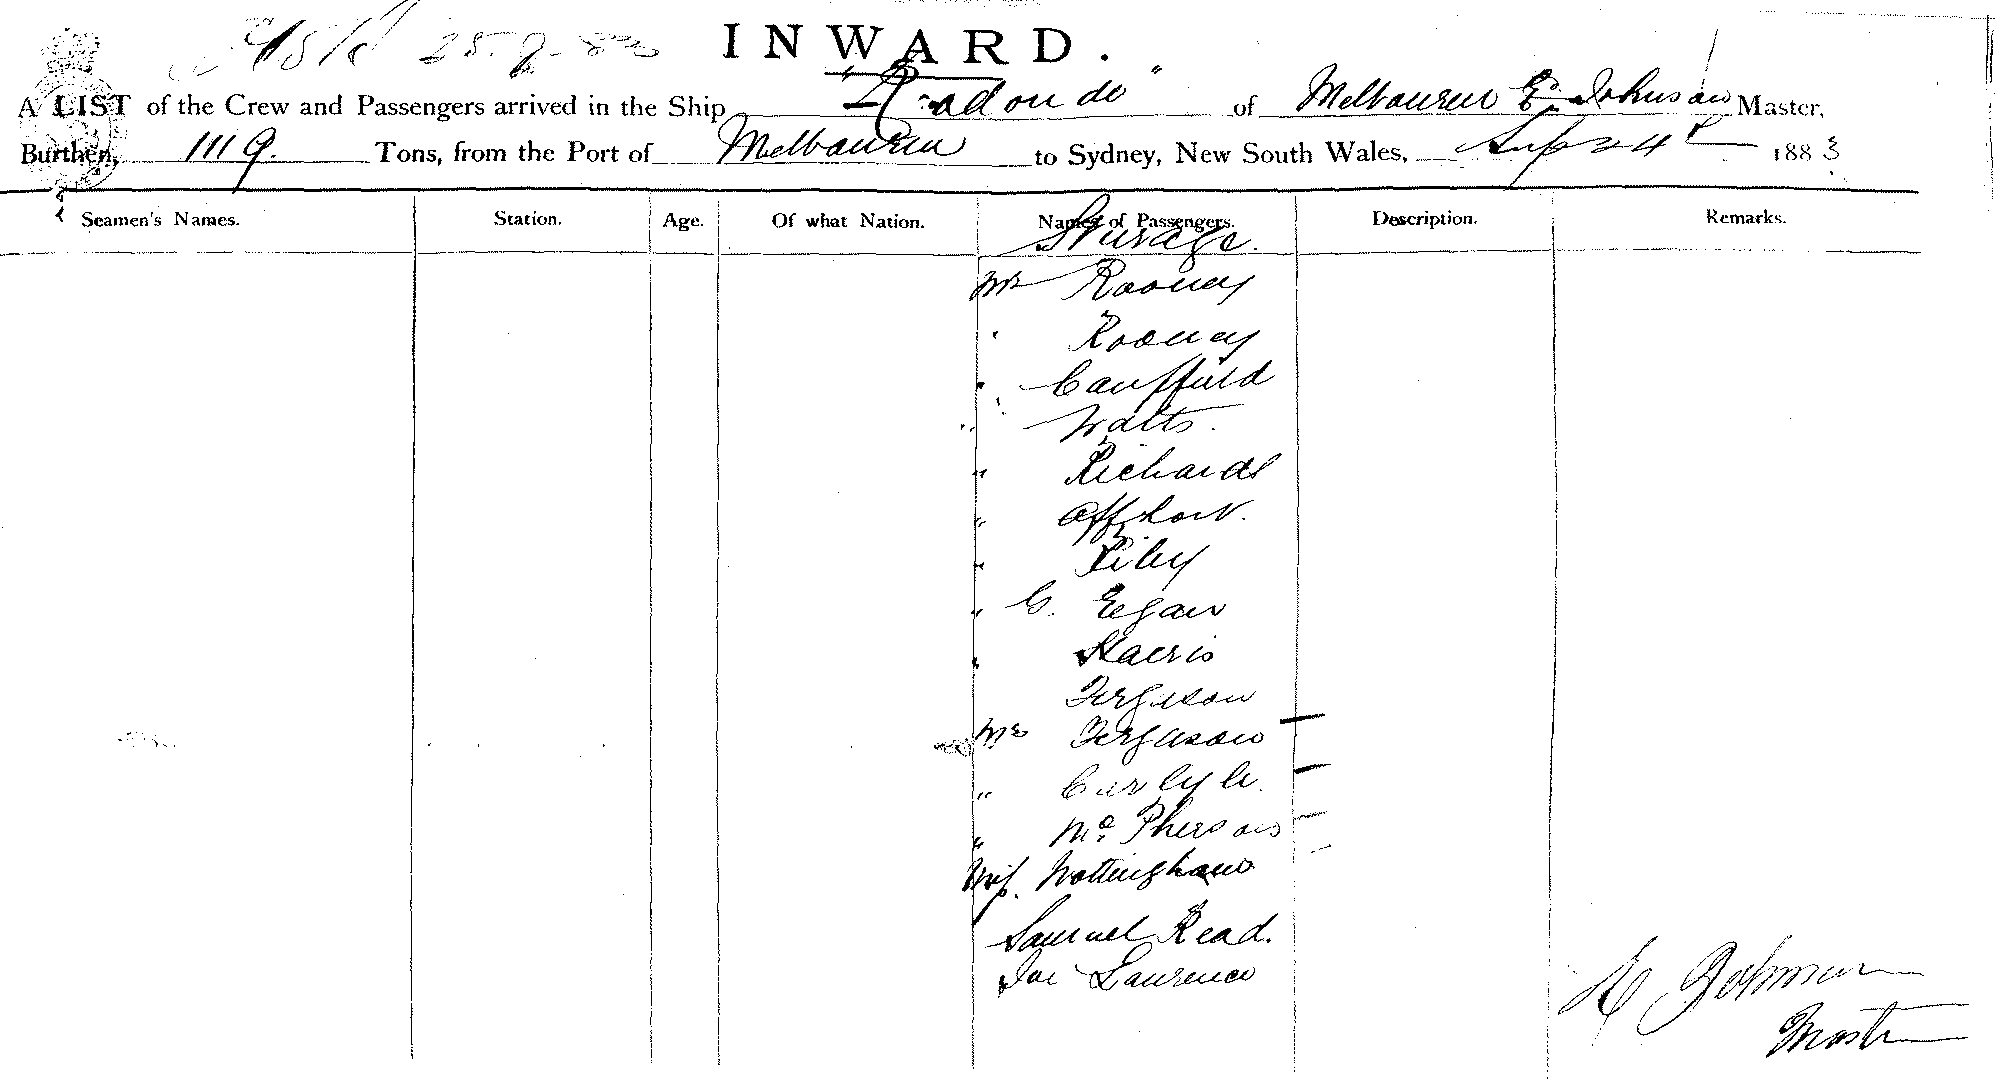 25.9.83 INWARD.
A LIST of the Crew and Passengers arrived in the Ship "Rodondo" of Melbourne E. Johnson Master,
Burthen, 1119. Tons, from the Port of Melbourne to Sydney, New South Wales, Sep 24th 1883
Seamen's Names. Station. Age. Of what Nation. Names of Passengers. Description. Remarks.
Steerage.
Mr Rooney
" Rooney
" Caulfield
" Watts.
" Richards
"
" Riley
" C. Eegan
" Harris
Ferguson
Mrs Ferguson
" Carlyle.
" McPherson
Miss. Nottingham
Samuel Read.
Joe Laurence
E Johnson
Master